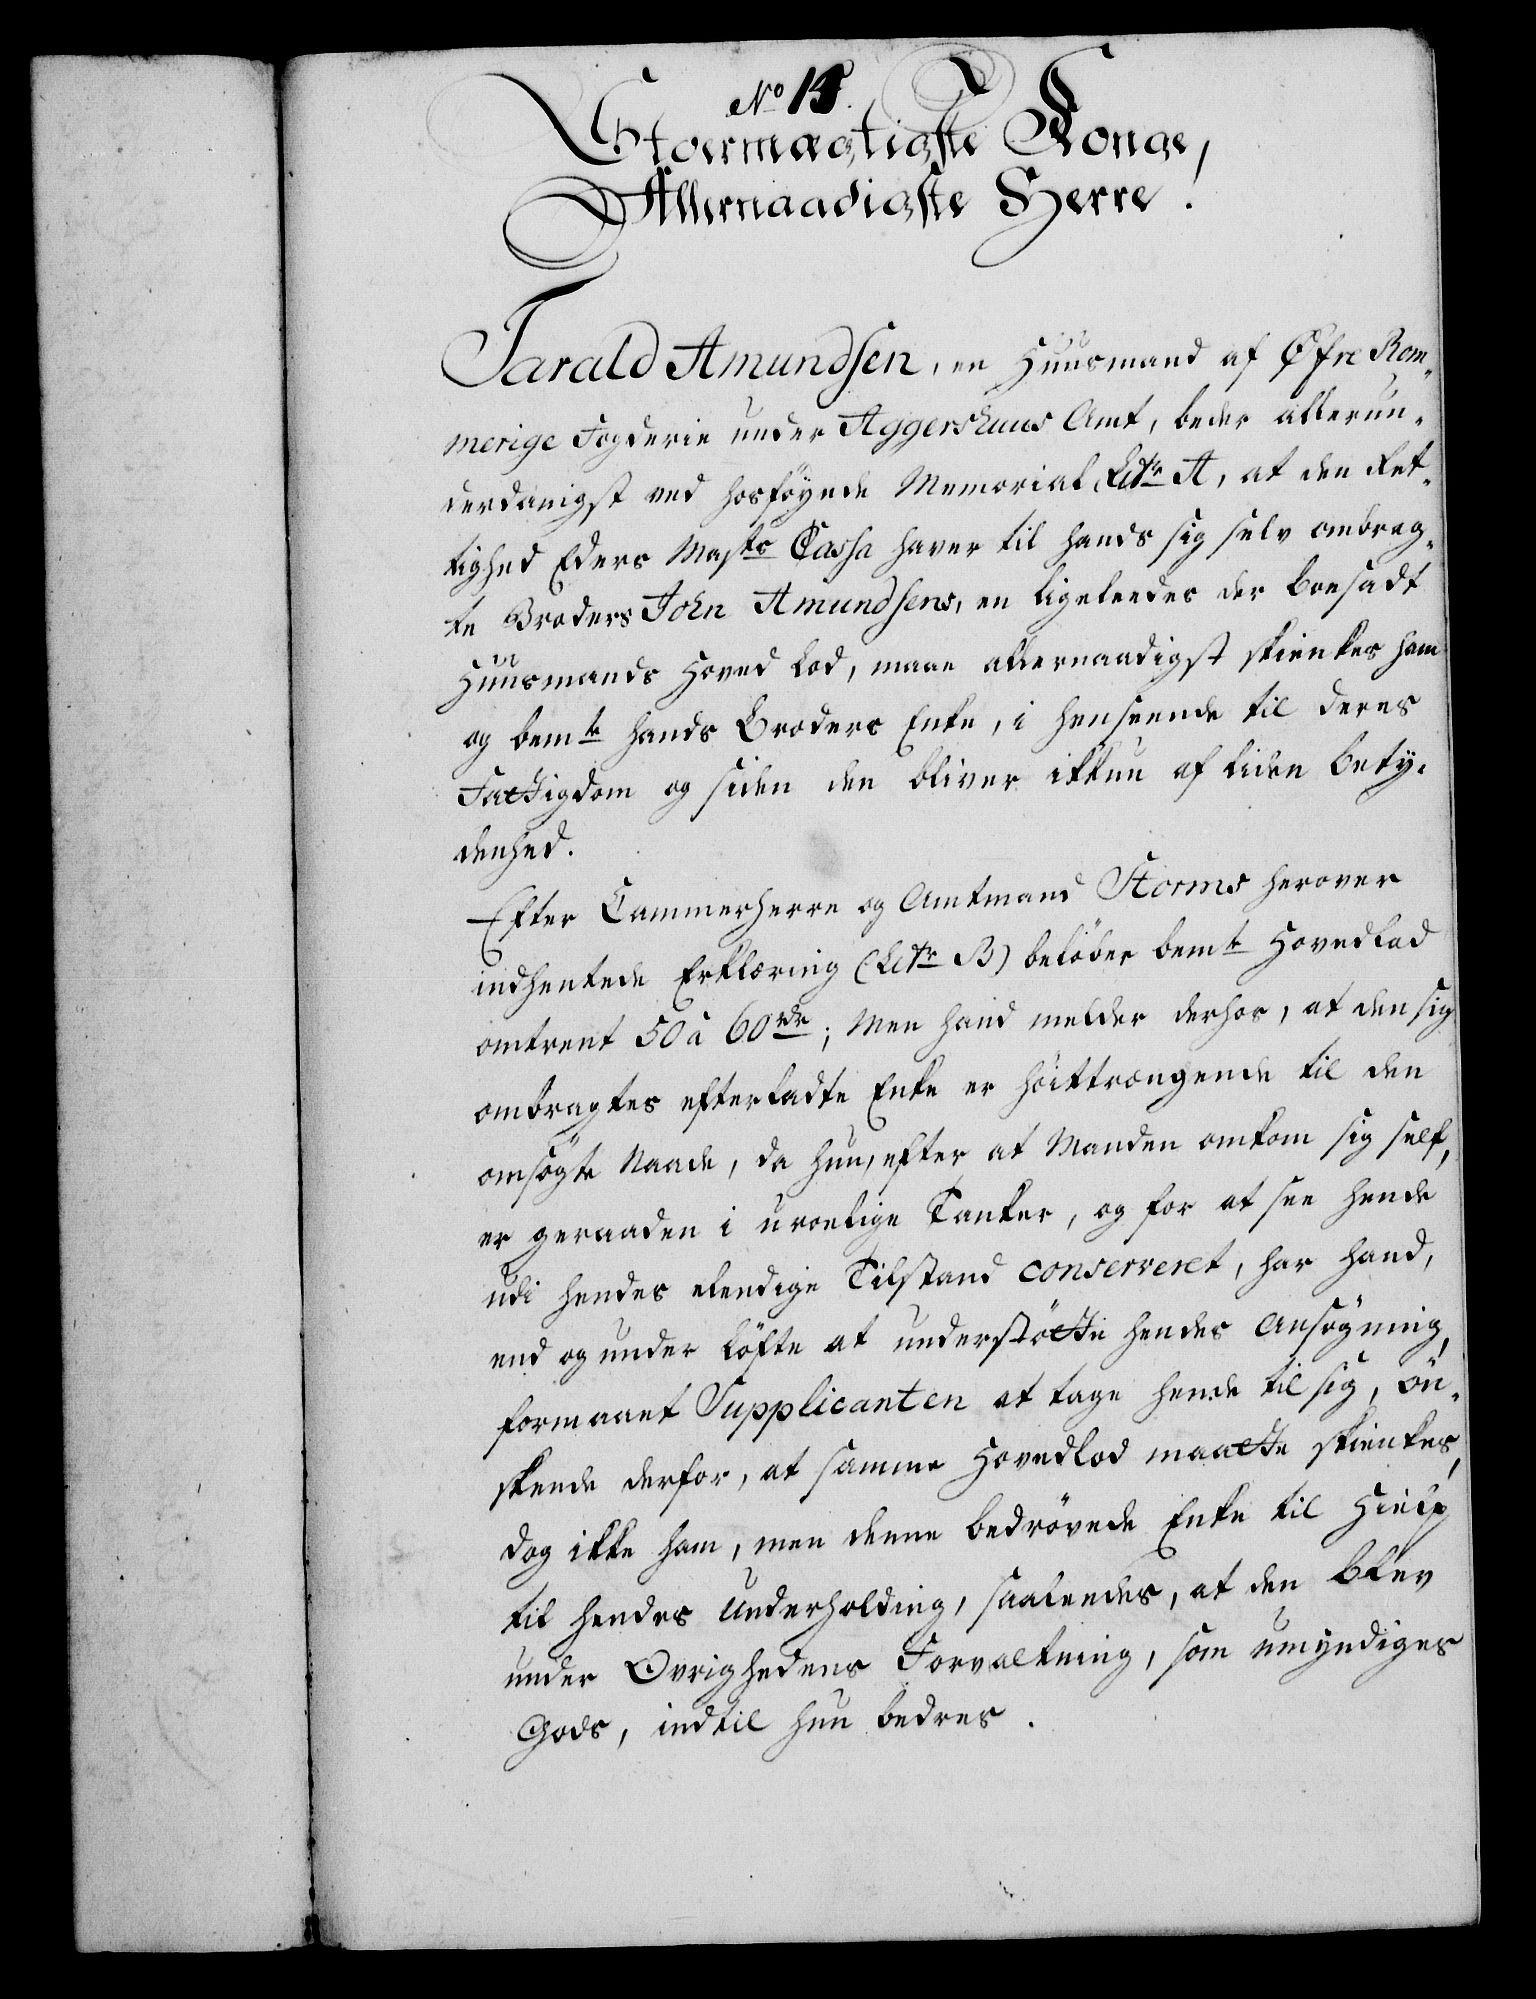 No 15.
Stoermægtigste Konge,
Allernaadigste Herre!
Tarald Amundsen, en Huusmand af Øfre Rom-
merige Fogderie under Aggershuus Amt, beder allerun-
derdanigst ved hosföyede Memorial Litr A, at den Ret-
tighed Eders Mayts Cassa haver til hands sig selv ombrag-
te Broders John Amundsens, en ligeleedes der boesadt
Huusmands Hoved Lod, maae allernaadigst skienkes ham
og bemte hands Broders Enke, i henseende til deres
Fattigdom og siden den bliver ikkun af liden bety-
denhed.
Efter Cammerherre og Amtmand Storms herover
indhentede Erklæring (Litr B) belöber bemte Hovedlod
omtrent 50 à 60 rdr; Men hand melder derhos, at den sig
ombragtes efterladte Enke er höittrængende til den
omsögte Naade, da hun, efter at Manden omkom sig self,
er geraaden i uroelige Tanker, og for at see hende
udi hendes elendige Tilstand conserveret, har hand,
end og under löfte at understötte hendes Ansögning,
formaaet Supplicanten at tage hende til sig, ön-
skende derfor, at samme Hovedlod maatte skienkes,
dog ikke ham, men denne bedrövede Enke til Hielp
til hendes Underholding, saaleedes, at den blev
under Øvrighedens Forvaltning, som umyndiges
Gods, indtil hun bedres.